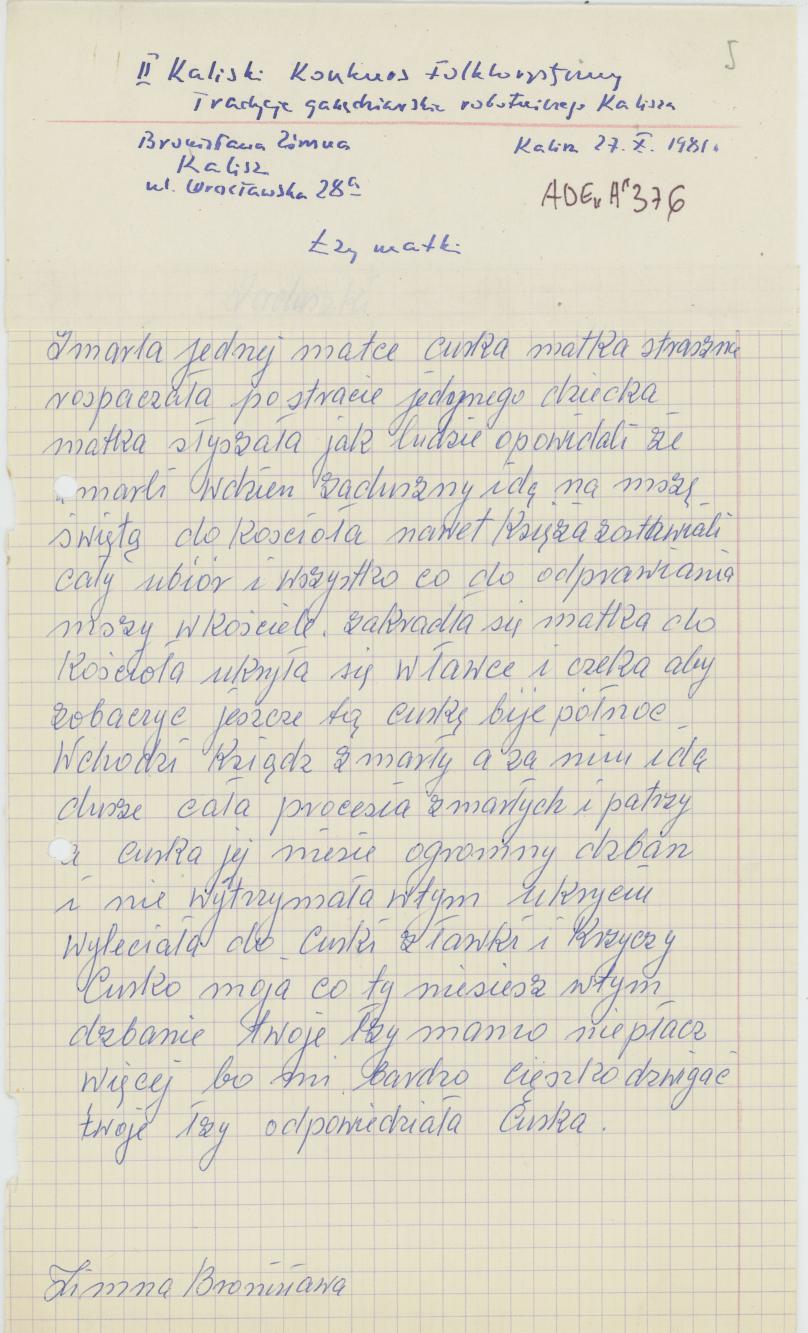 5
II Kaliski Konkurs Folklorystyczny
Tradycje gawędziarskie robotniczego Kalisza
Bronisława Zimna
Kalisz 27. X. 1981r.
Kalisz
ul. Wrocławska 28a
Łzy matki
Zmarła jednej matce curka matka straszne
rospaczała po stracie jedynego dziecka
matka słyszała jak ludzie opowidali że
zmarli wdzien zaduszny idą na mszę
świętą do kościoła nawet księża zostawiali
cały ubiór i wszystko co do odprawiania
mszy wkościele. zakradła się matka do
kościoła ukryła się włavce i czeka aby
zobaczyc jeszcze tą curkę bije północ
Wchodzi ksiądz zmarły a za nim idą
dusze cała procesia zmarłych i patrzy
a curka jej niesie ogromny dzban
i nie wytrzymała wtym ukryciu
wyleciała do curki zławki i krzyczy
Curko moja co ty niesiesz wtym
dzbanie twoje łzy mamo niepłacz
więcej bo mi bardzo cięszko dzwigać
twoje łzy odpowiedziała Curka.
Zimna Bronisława